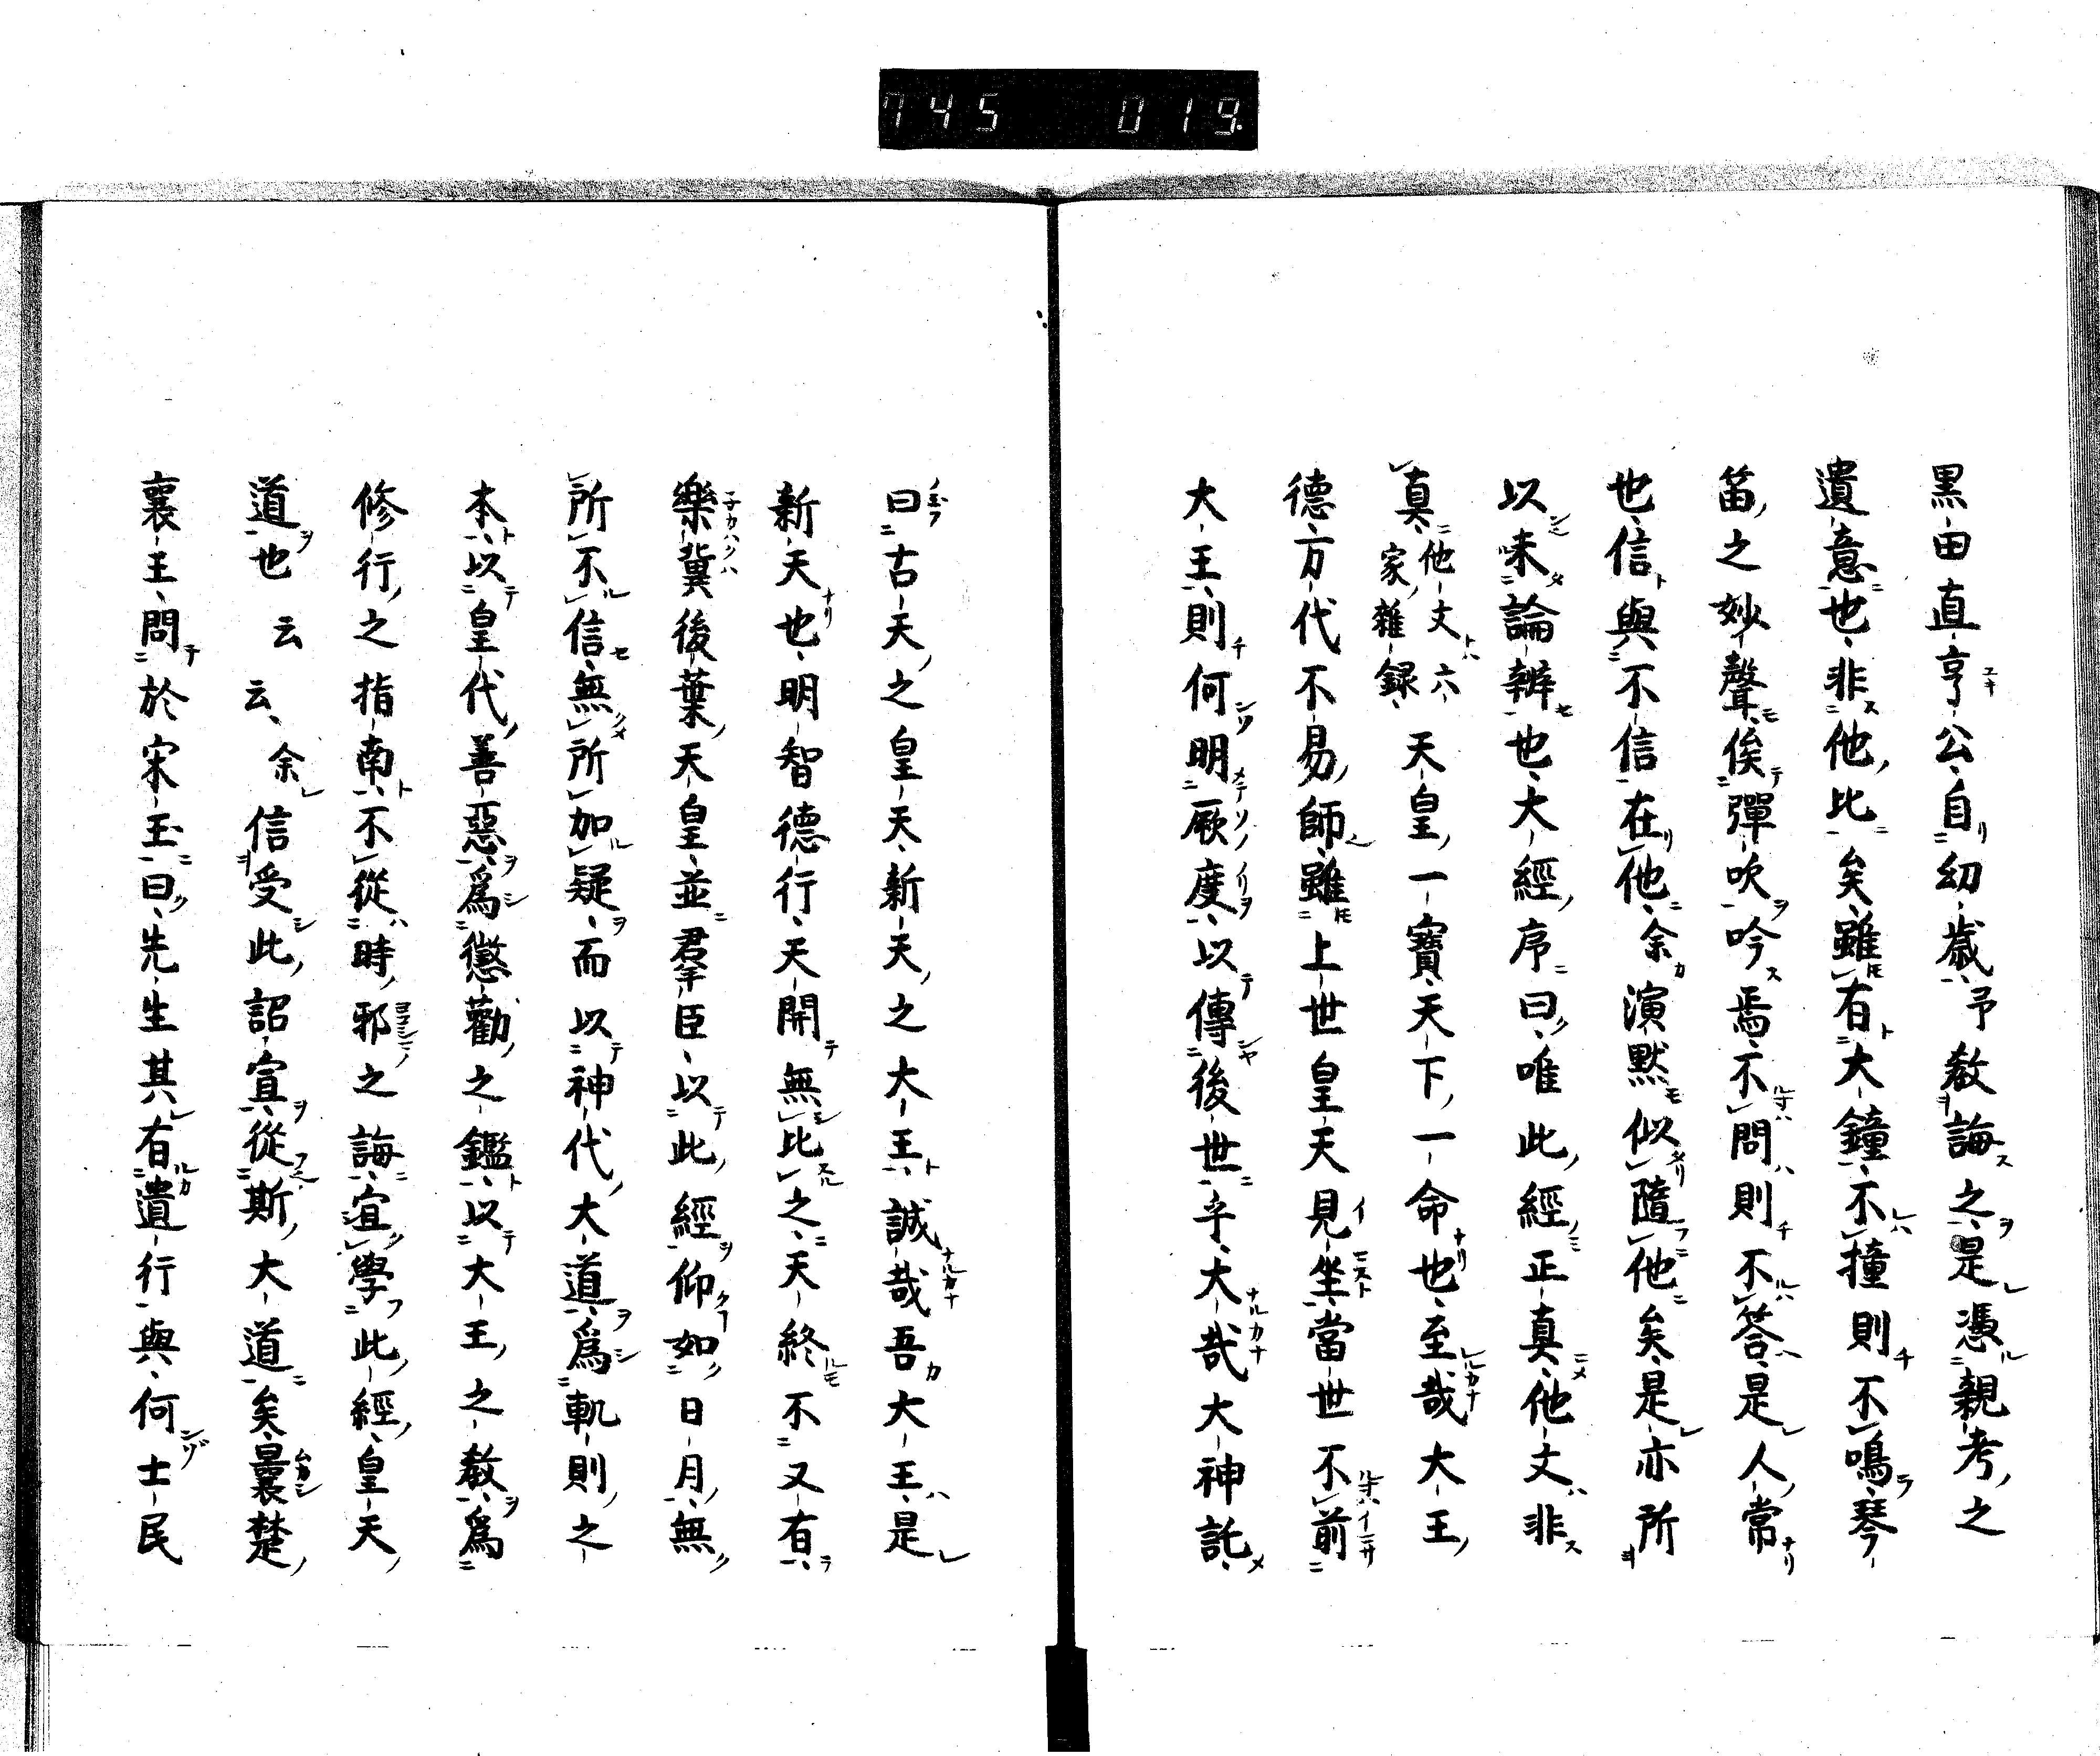 745 019.
黒田直亨公自幼歳予教誨之是憑親考之
遺意也非他比矣雖有大鐘不撞則不鳴琴
笛之妙聲俟彈吹吟焉不問則不答是人常
也信與不信在他余演黙似隨他矣是亦所
以未論辨也大經序曰唯此經正真他文非
真他文六家雜録天皇一寶天下一命也至哉大王
德方代不易師雖上世皇天見坐當世不前
大王則何明厥度以傳後世乎大哉大神託
曰古天之皇天新天之大王誠哉吾大王是
新天也明智德行天開無比之天終不又有
樂冀後葉天皇並羣臣以此經仰如日月無
所不信無所加疑而以神代大道爲軌則之
本以皇代善惡爲懲勸之鑑以大王之教爲
修行之指南不從時邪之誨宜學此經皇天
道也云云余信受此詔宣從斯大道矣曩楚
襄王問於宋玉曰先生其有遺行與何士民